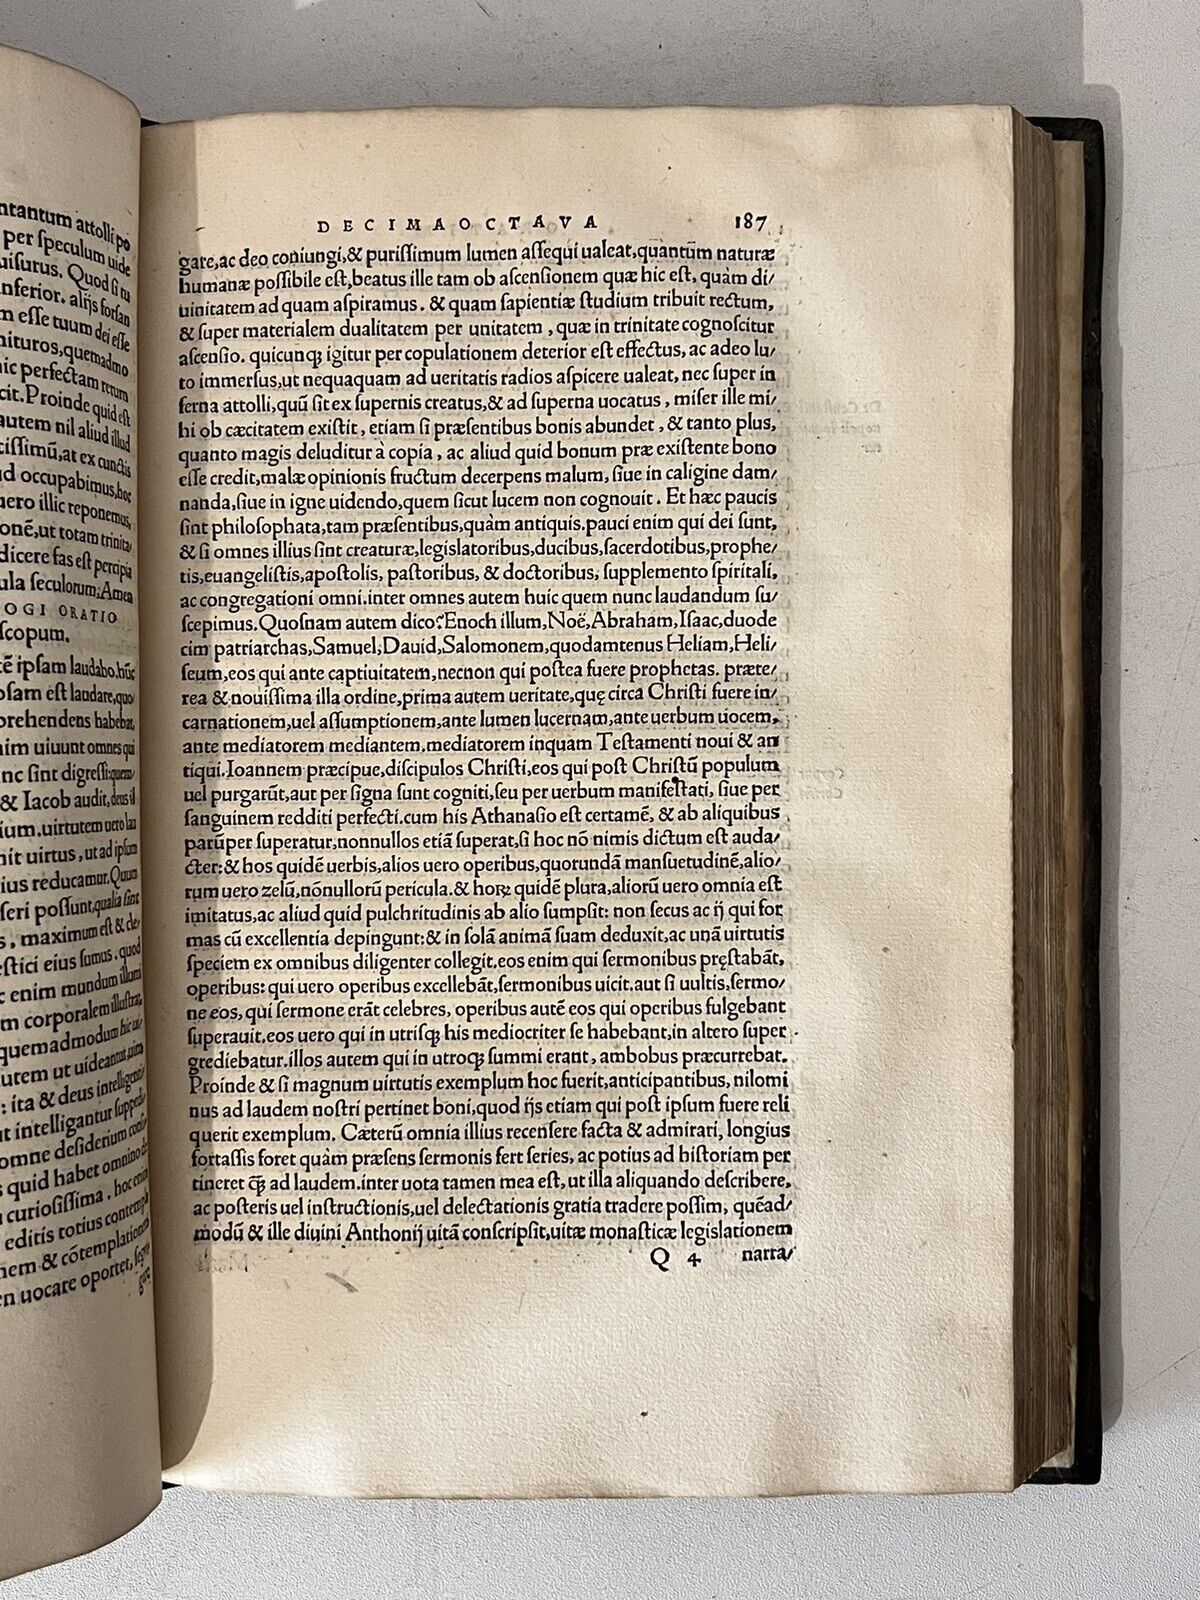 ntantum attolli po
per ſpeculum uide
uiſurus. Quod ſi tu
nferior. alijs forſan
m eſſe tuum dei eſſe
nituros,quemadmo
ic perfectam rerum
cit.Proinde quid eſt
autem nil aliud illud
ciſſimũ,at ex cunctis
d occupabimus,hoc
uero illic reponemus,
onẽ,ut totam trinita
dicere fas eſt percipia
ula ſeculorum;Amen
OGI ORATIO
ſcopum.
tẽ ipſam laudabo.hũc
pſam eſt laudare,quo
prehendens habebat,
nim uiuunt omnes qui
nc ſint digreſſi:quem
& Iacob audit,deus il
ium.uirtutem uero lau
nit uirtus,ut ad ipſum
ius reducamur.Quum
ſeri poſſunt,qualia ſint
s, maximum eſt & cle
ſtici eius ſumus. quod
c enim mundum illumi
m corporalem illuſtrat,
quemadmodum hic ui
utem ut uideantur
: ita & deus intelligent
t intelligantur ſuppedi
omne deſiderium conſi
s quid habet omnino de
curioſiſſima, hoc enim
editis totius contemplā
nem & cõtemplationem
en uocare oportet, ſegre
gare
DECIMAOCTAVA 187
gare,ac deo coniungi,& puriſſimum lumen aſſequi ualeat,quantũm naturæ
humanæ poſſibile eſt,beatus ille tam ob aſcenſionem quæ hic eſt, quàm di/
uinitatem ad quam aſpiramus. & quam ſapientiæ ſtudium tribuit rectum,
& ſuper materialem dualitatem per unitatem, quæ in trinitate cognoſcitur
aſcenſio. quicunq; igitur per copulationem deterior eſt effectus, ac adeo lu/
to immerſus,ut nequaquam ad ueritatis radios aſpicere ualeat, nec ſuper in
ferna attolli,quũ ſit ex ſupernis creatus,& ad ſuperna uocatus, miſer ille mi/
hi ob cæcitatem exiſtit, etiam ſi præſentibus bonis abundet, & tanto plus,
quanto magis deluditur à copia, ac aliud quid bonum præ exiſtente bono
eſſe credit,malæ opinionis fructum decerpens malum, ſiue in caligine dam/
nanda,ſiue in igne uidendo,quem ſicut lucem non cognouit. Et hæc paucis
ſint philoſophata,tam præſentibus,quàm antiquis.pauci enim qui dei ſunt,
& ſi omnes illius ſint creaturæ,legiſlatoribus,ducibus,ſacerdotibus,prophe/
tis,euangeliſtis,apoſtolis, paſtoribus, & doctoribus, ſupplemento ſpiritali,
ac congregationi omni.inter omnes autem huic quem nunc laudandum ſu/
ſcepimus.Quoſnam autem dico?Enoch illum,Noë,Abraham,Iſaac,duode
cim patriarchas,Samuel,Dauid,Salomonem,quodamtenus Heliam,Heli/
ſeum,eos qui ante captiuitatem,necnon qui poſtea fuere prophetas. præte/
rea & nouiſſima illa ordine,prima autem ueritate,quę circa Chriſti fuere in/
carnationem,uel aſſumptionem,ante lumen lucernam,ante uerbum uocem,
ante mediatorem mediantem.mediatorem inquam Teſtamenti noui & an
tiqui.Ioannem præcipue,diſcipulos Chriſti,eos qui poſt Chriſtũ populum
uel purgarũt,aut per ſigna ſunt cogniti,ſeu per uerbum manifeſtati, ſiue per
ſanguinem redditi perfecti.cum his Athanaſio eſt certamẽ, & ab aliquibus
parũper ſuperatur,nonnullos etiã ſuperat,ſi hoc nõ nimis dictum eſt auda/
cter:& hos quidẽ uerbis,alios uero operibus,quorundã manſuetudinẽ,alio/
rum uero zelũ,nõnullorũ pericula.& horꝝ quidẽ plura,aliorũ uero omnia eſt
imitatus,ac aliud quid pulchritudinis ab alio ſumpſit: non ſecus ac ij qui for
mas cũ excellentia depingunt:& in ſolã animã ſuam deduxit,ac unã uirtutis
ſpeciem ex omnibus diligenter collegit,eos enim qui ſermonibus pręſtabãt,
operibus: qui uero operibus excellebãt,ſermonibus uicit.aut ſi uultis,ſermo/
ne eos, qui ſermone erãt celebres, operibus autẽ eos qui operibus fulgebant
ſuperauit.eos uero qui in utriſq; his mediocriter ſe habebant,in altero ſuper
grediebatur.illos autem qui in utroq; ſummi erant, ambobus præcurrebat.
Proinde & ſi magnum uirtutis exemplum hoc fuerit,anticipantibus, nilomi
nus ad laudem noſtri pertinet boni,quod ijs etiam qui poſt ipſum fuere reli
querit exemplum. Cæterũ omnia illius recenſere facta & admirari, longius
fortaſſis foret quàm præſens ſermonis fert ſeries, ac potius ad hiſtoriam per
tineret q̃ꝫ ad laudem.inter uota tamen mea eſt,ut illa aliquando deſcribere,
ac poſteris uel inſtructionis,uel delectationis gratia tradere poſſim, quẽad/
modũ & ille diuini Anthonij uitã conſcripſit,uitæ monaſticæ legiſlationem
Q 4 narra/